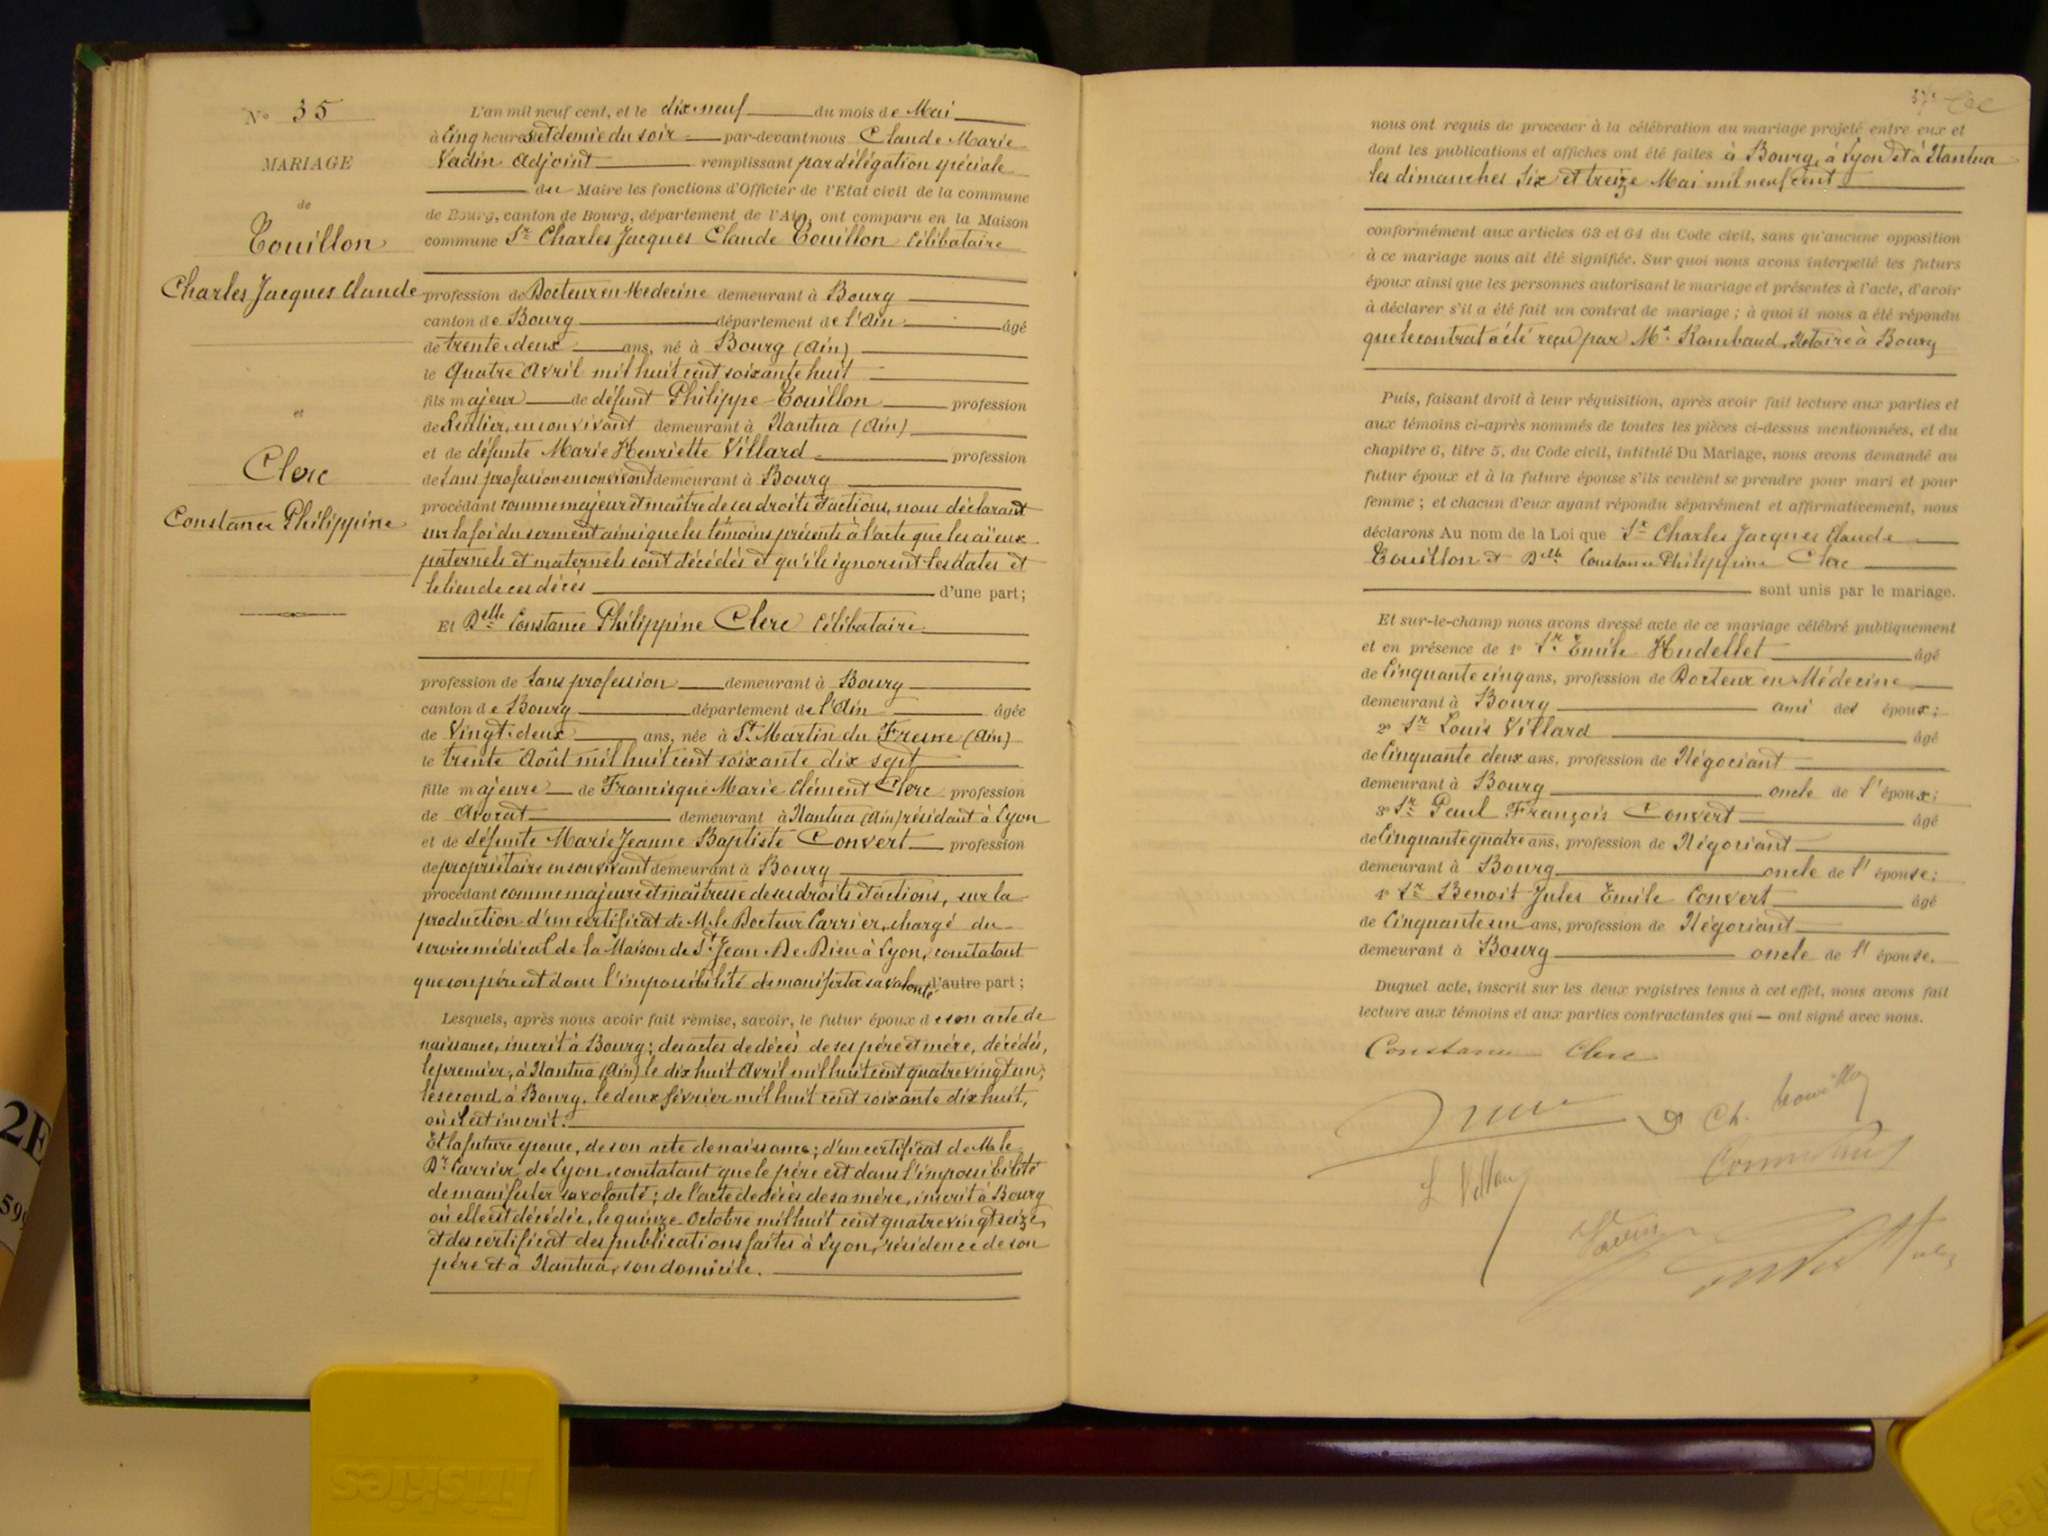 N° 35
MARIAGE
de
Touillon
Charles Jacques Claude
et
Clerc
Constance Philippine
L'an mil neuf cent, et le dix-neuf du mois de Mai
à Cinq heures et demie du soir par-devant nous Claude Marie
Vadin Adjoint remplissant par délégation spéciale
du Maire les fonctions d'Officier de l'Etat civil de la commune
de Bourg, canton de Bourg, département de l'Ain, ont comparu en la Maison
commune Sr Charles Jacques Claude Touillon Célibataire
profession de Docteur en Médecine demeurant à Bourg
canton de Bourg département de l'Ain âgé
de trente-deux ans, né à Bourg (Ain)
le Quatre Avril mil huit cent soixante huit
fils majeur de défunt Philippe Touillon profession
de Rentier, en son vivant demeurant à Nantua (Ain)
et de défunte Marie Henriette Villard profession
de Sans profession en son vivant demeurant à Bourg
procédant comme majeur et maître de ses droits et actions, nous déclarant
sur la foi du serment ainsi que les témoins présents à l'acte que les aïeux
paternels et maternels sont décédés et qu'ils ignorent les dates et
le lieu de ces décès d'une part;
Et Delle Constance Philippine Clerc Célibataire
profession de Sans profession demeurant à Bourg
canton de Bourg département de l'Ain âgée
de Vingt-deux ans, née à St Martin du Fresne (Ain)
le trente Août mil huit cent soixante dix sept
fille majeure de Francisque Marie Clément Clerc profession
de Avocat demeurant à Nantua (Ain) résidant à Lyon
et de défunte Marie Jeanne Baptiste Convert profession
de propriétaire en son vivant demeurant à Bourg
procédant comme majeure et maîtresse de ses droits et actions, sur la
production d'un certificat de M. le Docteur Carrier, chargé du
service médical de la Maison de St Jean De Dieu à Lyon, constatant
que son père est dans l'impossibilité de manifester sa volonté d'autre part;
Lesquels, après nous avoir fait remise, savoir, le futur époux de son acte de
naissance, inscrit à Bourg; des actes de décès de ses père et mère, décédés,
le premier, à Nantua (Ain) le dix huit Avril mil huit cent quatre vingt un;
le second, à Bourg, le deux février mil huit cent soixante dix huit,
où il est inscrit.
Et la future épouse, de son acte de naissance; d'un certificat de M. le
Dr Carrier, de Lyon, constatant que le père est dans l'impossibilité
de manifester sa volonté; de l'acte de décès de sa mère, inscrit à Bourg
où elle est décédée, le quinze Octobre mil huit cent quatre vingt seize,
et des certificat des publications faites à Lyon, résidence de son
père et à Nantua, son domicile.
nous ont requis de procéder à la célébration du mariage projeté entre eux et
dont les publications et affiches ont été faites à Bourg, à Lyon et à Nantua
les dimanches Six et treize Mai mil neuf cent
conformément aux articles 63 et 64 du Code civil, sans qu'aucune opposition
à ce mariage nous ait été signifiée. Sur quoi nous avons interpellé les futurs
époux ainsi que les personnes autorisant le mariage et présentes à l'acte, d'avoir
à déclarer s'il a été fait un contrat de mariage; à quoi il nous a été répondu
que le contrat a été reçu par Me Rambaud, Notaire à Bourg
Puis, faisant droit à leur réquisition, après avoir fait lecture aux parties et
aux témoins ci-après nommés de toutes les pièces ci-dessus mentionnées, et du
chapitre 6, titre 5, du Code civil, intitulé Du Mariage, nous avons demandé au
futur époux et à la future épouse s'ils veulent se prendre pour mari et pour
femme; et chacun d'eux ayant répondu séparément et affirmativement, nous
déclarons Au nom de la Loi que Sr Charles Jacques Claude
Touillon et Delle Constance Philippine Clerc
sont unis par le mariage.
Et sur-le-champ nous avons dressé acte de ce mariage célébré publiquement
et en présence de 1° Sr Emile Hudellet âgé
de Cinquante cinq ans, profession de Docteur en Médecine
demeurant à Bourg ami des époux;
2° Sr Louis Villard âgé
de Cinquante deux ans, profession de Négociant
demeurant à Bourg oncle de l'époux;
3° Sr Paul François Convert âgé
de Cinquante quatre ans, profession de Négociant
demeurant à Bourg oncle de l'épouse;
4° Sr Benoit Jules Emile Convert âgé
de Cinquante un ans, profession de Négociant
demeurant à Bourg oncle de l'épouse.
Duquel acte, inscrit sur les deux registres tenus à cet effet, nous avons fait
lecture aux témoins et aux parties contractantes qui ont signé avec nous.
Constance Clerc
Ch. Touillon
L Villard
Vadin